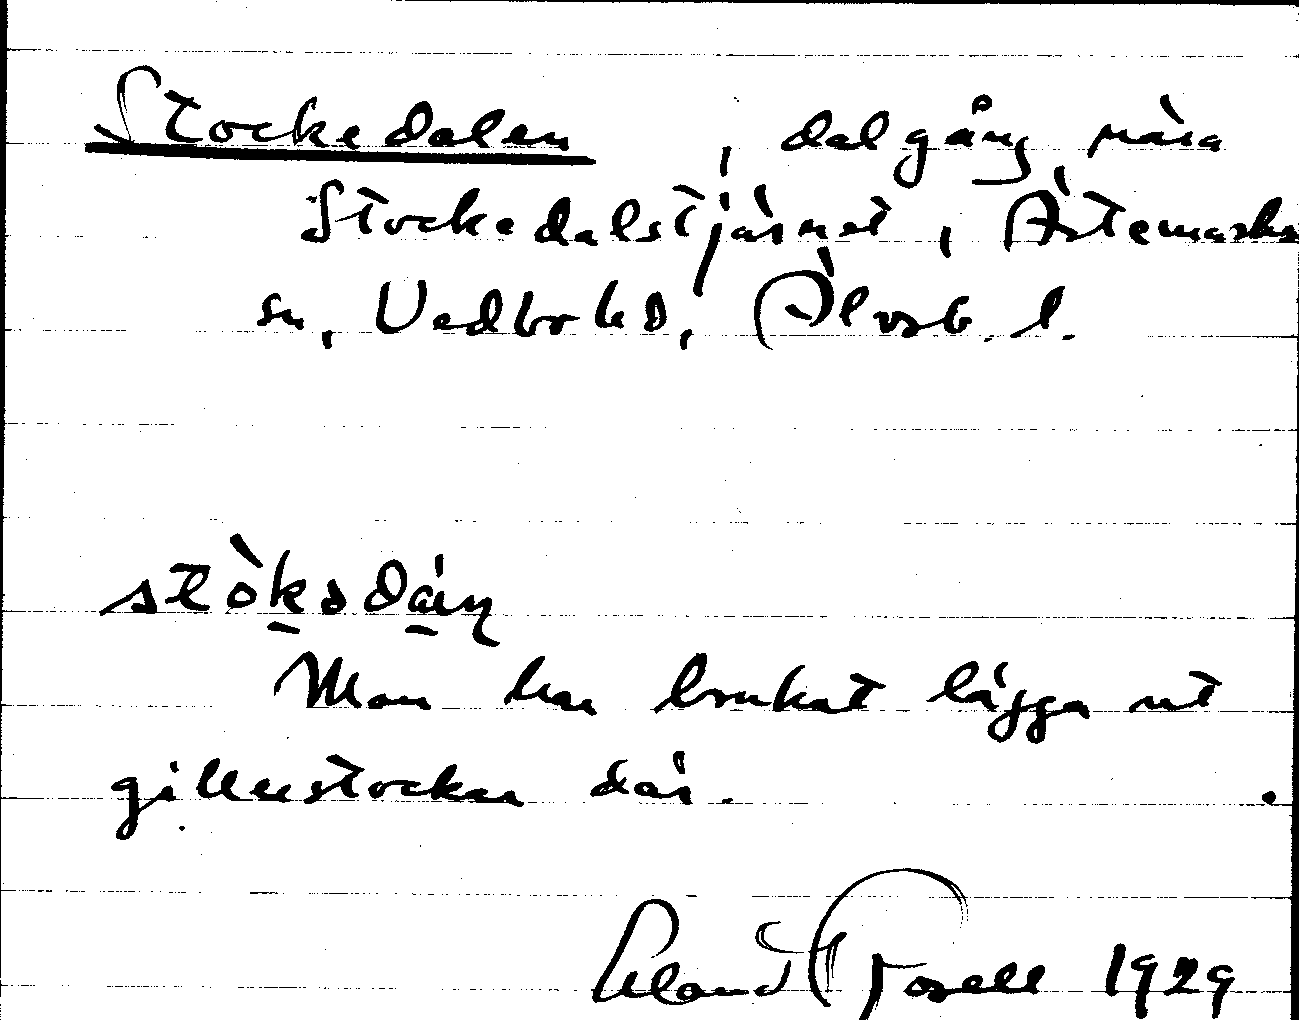 Stockedalen, dalgång nära
Stockedalstjärnet, Ärtemarks
sn, Vedbo hd, Älvsb. l.
stòksdáṇ
Man har brukat lägga ut
gillerstockar där.
Torell 1929